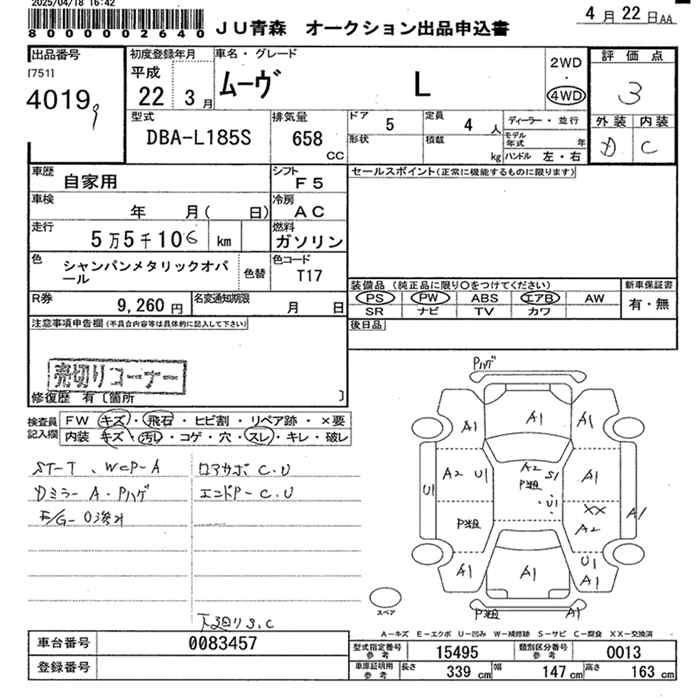 2025/04/18 16:42
8000002640
JU青森 オークション出品申込書
4月22日AA
出品番号
[751]
4019
初度登録年月
平成
22 3月
車名・グレード
ムーヴ L
2WD
・
4WD
評価点
3
外装 内装
D C
型式
DBA-L185S
排気量
658
CC
ドア 5
形状
定員 4 人
積載 kg
ディーラー・並行
モデル年式 年
ハンドル 左・右
車歴
自家用
シフト
F5
車検
年 月( 日)
冷房
AC
走行
5万5千106 km
燃料
ガソリン
色
シャンパンメタリックオパール
色替
色コード
T17
セールスポイント(正常に機能するものに限ります)
装備品 (純正品に限り○をつけてください)
PS PW ABS エアB AW
SR ナビ TV カワ
新車保証書
有・無
後日品
R券
9,260円
名変通知期限
月 日
注意事項申告欄(不具合内容等は具体的に記入して下さい)
売切りコーナー
修復歴 有〔箇所 〕
検査員記入欄
FW キズ・飛石・ヒビ割・リペア跡・×要
内装 キズ・汚レ・コゲ・穴・スレ・キレ・破レ
ST-T、WCP-A
Dミラー A・Pハゲ
ロアカボ C.U
エンドP-C.U
下廻り S.C
Pハゲ
A1
A1 A1
A2 U1
A2
S1
P粗
U1
A1
U1
P粗
XX
A2
A1
A1
A1
U1
A1
P粗 A1
スペア
A-キズ E-エクボ U-凹み W-補修跡 S-サビ C-腐食 XX-交換済
車台番号
0083457
登録番号
型式指定番号
参考
15495
類別区分番号
参考
0013
車庫証明用
参考
長さ 339 cm
幅 147 cm
高さ 163 cm